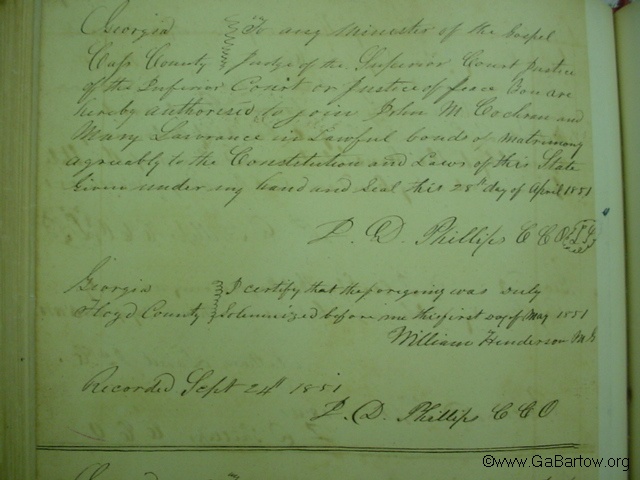 Georgia To any Minister of the Gospel
Cass County Judge of the Superior Court Justice
of the Inferior Court or Justice of peace You are
hereby authorised to join John M Cochran and
Mary Lawrance in Lawful bonds of Matrimony
agreably to the Constitution and Laws of this State
Given under my hand and Seal this 28th day of April 1851
P. D. Phillips C C O
Georgia I certify that the foregoing was duly
Floyd County Solemnized before me this first day of May 1851
William Henderson M G
Recorded Sept 24th 1851
P. D. Phillips C C O
©www.GaBartow.org